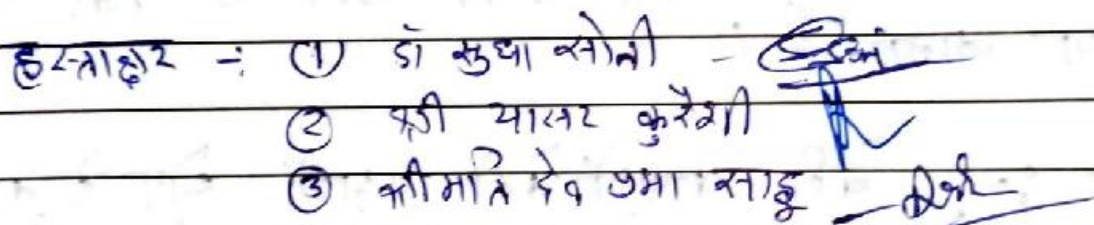 हस्ताक्षर :- ① डॉ सुधा सोनी -
② श्री यासर कुरैशी
③ श्रीमति देव उमा साहू